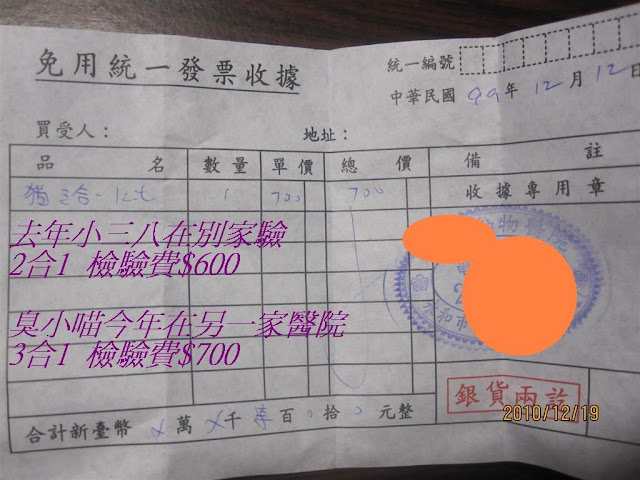 免用統一發票收據
統一編號
中華民國 99 年 12 月 12 日
買受人： 地址：
品名 數量 單價 總價 備註
貓三合一 kit 1 700 700
收據專用章
去年小三八在別家驗
2合1 檢驗費$600
臭小喵今年在另一家醫院
3合1 檢驗費$700
物醫院
和市
銀貨兩訖
合計新臺幣 萬 千 柒 百 0 拾 0 元整
2010/12/19